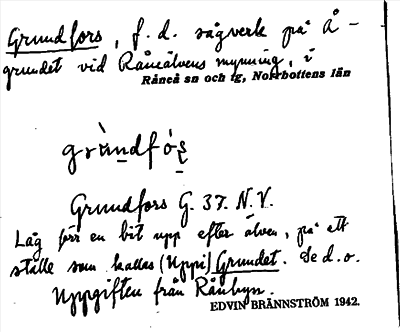 Grundfors, f. d. sågverk på Å-
grundet vid Råneälvens mynning, i
Råneå sn och tg, Norrbottens län
grùndfó̀ṣ
Grundfors G. 37. N.V.
Låg förr en bit upp efter älven, på ett
ställe som kallas (Uppi) Grundet. Se d. o.
Uppgiften från Rånbyn.
EDVIN BRÄNNSTRÖM 1942.